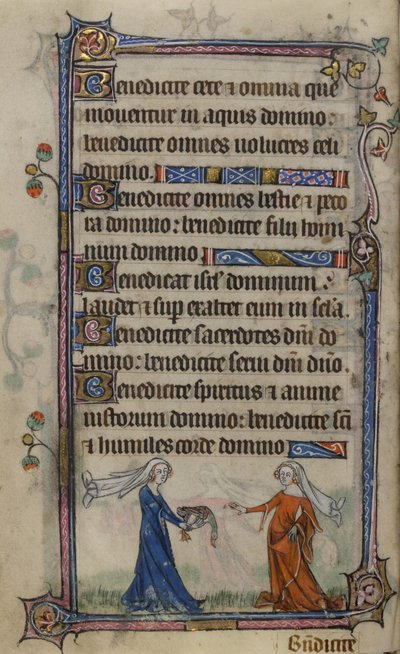 Benedicite cete ⁊ omnia que
mouentur in aquis domino :
benedicite omnes uolucres celi
domino.
Benedicite omnes bestie ⁊ peco
ra domino : benedicite filii homi
num domino
Benedicat isrl' dominum :
laudet ⁊ sup exaltet eum in scla.
Benedicite sacerdotes dni do
mino : benedicite serui dni dno.
Benedicite spiritus ⁊ anime
iustorum domino : benedicite sci
⁊ humiles corde domino
Bndicite